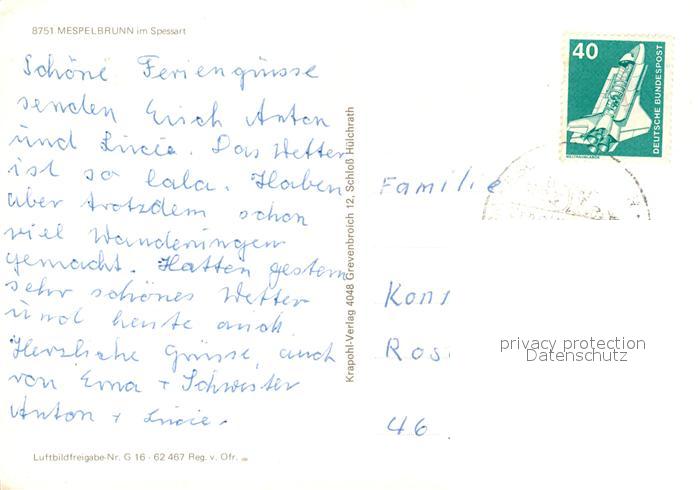 8751 MESPELBRUNN im Spessart
Schöne Feriengrüsse
senden Erich Anton
und Lucie. Das Wetter
ist so lala. Haben
aber trotzdem schon
viel Wanderungen
gemacht. Hatten gestern
sehr schönes Wetter
und heute auch.
Herzliche Grüsse, auch
von Erna + Schwester
Anton + Lucie.
Luftbildfreigabe-Nr. G 16 - 62 467 Reg. v. Ofr.
Krapohl-Verlag 4048 Grevenbroich 12, Schloß Hülchrath
40
DEUTSCHE BUNDESPOST
WELTRAUMLABOR
Familie
Kons
Ros
46
privacy protection
Datenschutz